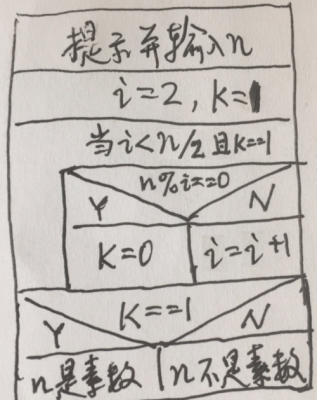 提示并输入n
i=2, K=1
当i<n/2且K==1
n%i==0
Y N
K=0 i=i+1
K==1
Y N
n是素数 n不是素数